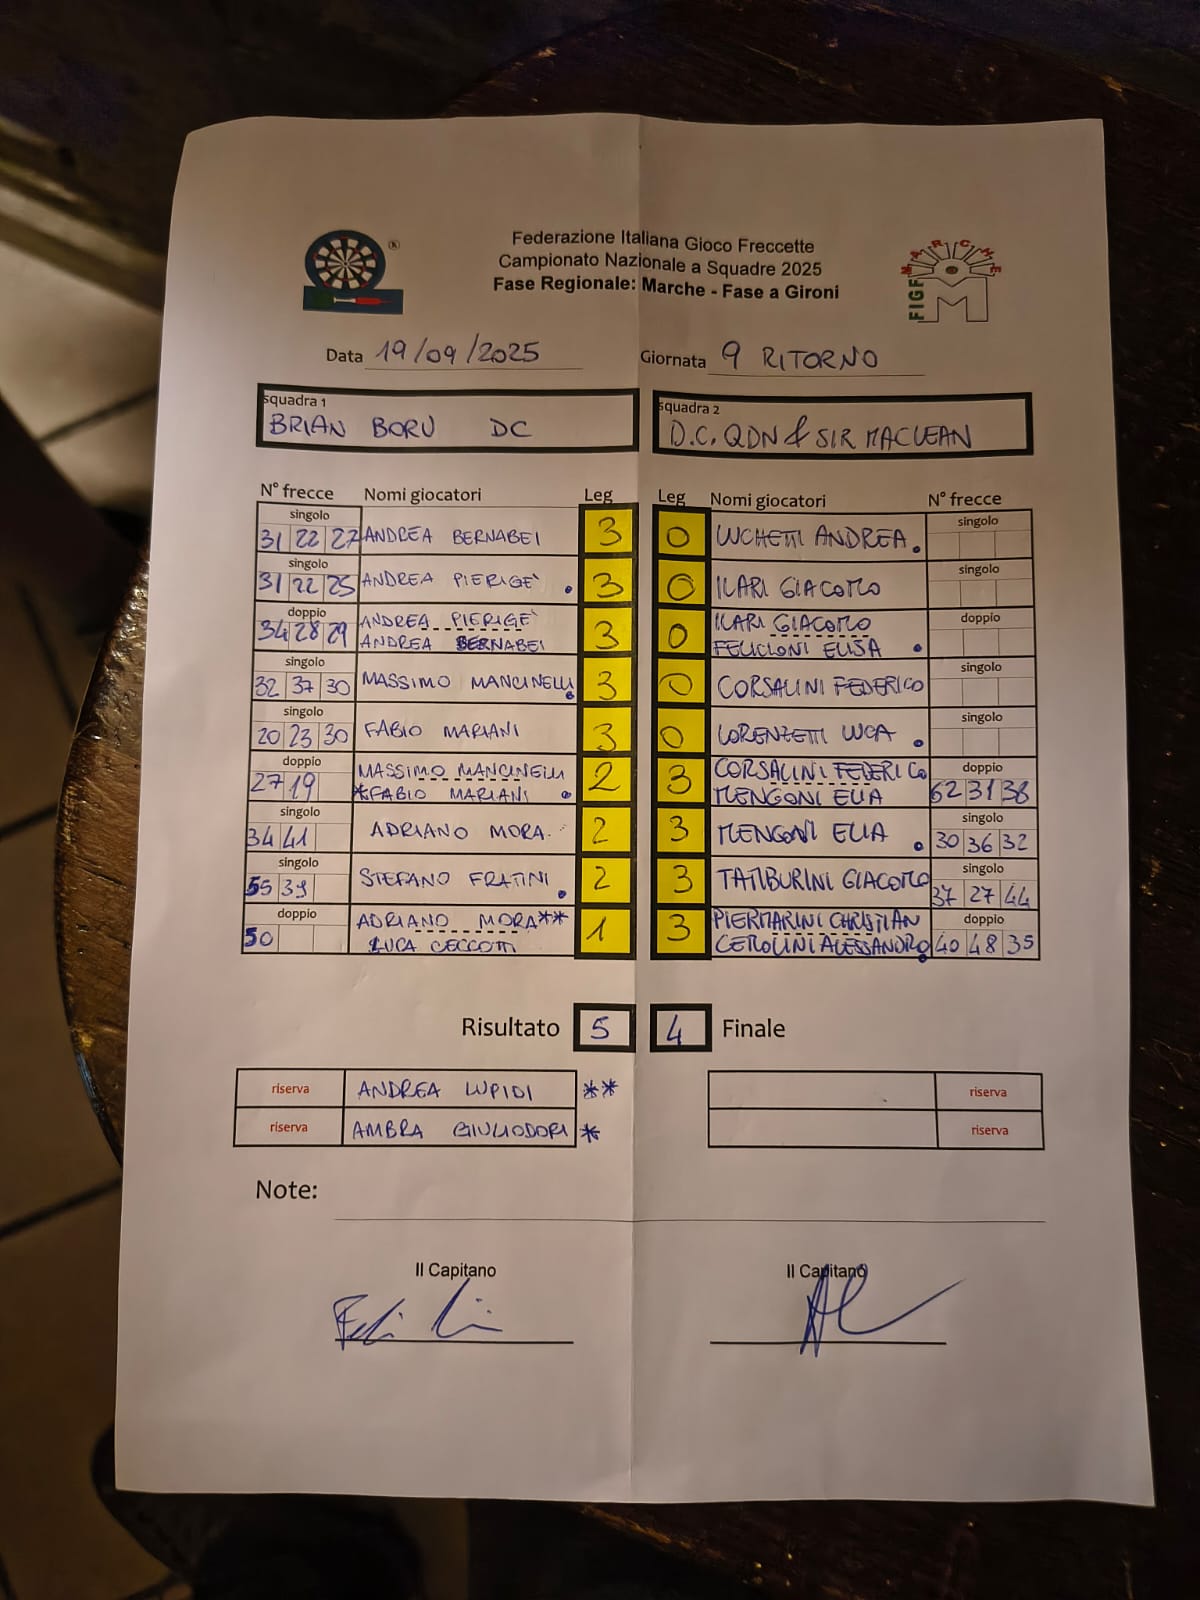 Federazione Italiana Gioco Freccette
Campionato Nazionale a Squadre 2025
Fase Regionale: Marche - Fase a Gironi
®
MARCHE
FIGF
M
Data 19/09/2025 Giornata 9 RITORNO
squadra 1
BRIAN BORU DC
squadra 2
D.C. QDN & SIR MACLEAN
N° frecce Nomi giocatori Leg Leg Nomi giocatori N° frecce
singolo singolo
31 22 27 ANDREA BERNABEI 3 0 LUCHETTI ANDREA .
singolo singolo
31 22 25 ANDREA PIERIGE' . 3 0 ILARI GIACOMO
doppio doppio
34 28 29 ANDREA PIERIGE' 3 0 ILARI GIACOMO
ANDREA BERNABEI FELICIONI ELISA .
singolo singolo
32 37 30 MASSIMO MANCINELLI . 3 0 CORSALINI FEDERICO
singolo singolo
20 23 30 FABIO MARIANI 3 0 LORENZETTI LUCA .
doppio doppio
27 19 MASSIMO MANCINELLI 2 3 CORSALINI FEDERICO 62 31 38
*FABIO MARIANI . MENGONI ELIA
singolo singolo
34 41 ADRIANO MORA 2 3 MENGONI ELIA . 30 36 32
singolo singolo
55 39 STEFANO FRATINI . 2 3 TAMBURINI GIACOMO 37 27 44
doppio doppio
50 ADRIANO MORA** 1 3 PIERMARINI CHRISTIAN 40 48 35
LUCA CECCOTTI CEROLINI ALESSANDRO .
Risultato 5 4 Finale
riserva ANDREA LUPIDI ** riserva
riserva AMBRA GIULIODORI * riserva
Note:
Il Capitano Il Capitano